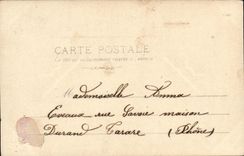 CARTE POSTALE
Mademoiselle Anna
Eveaux rue Savoie maison
Durand Tarare (Rhône)